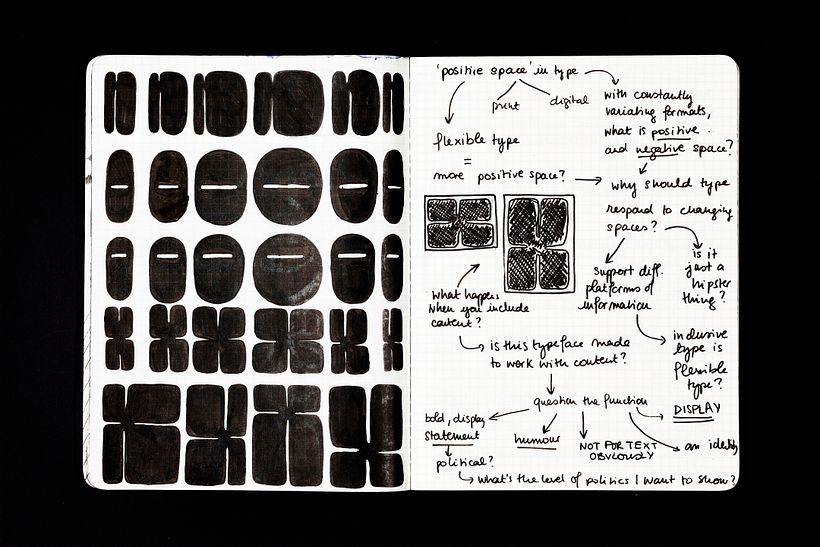 'positive space' in type
print
digital
with constantly
variating formats,
what is positive
and negative space?
flexible type
=
more positive space?
why should type
respond to changing
spaces?
support diff.
platforms of
information
is it
just a
hipster
thing?
what happens
when you include
content?
is this typeface made
to work with content?
inclusive
type is
flexible
type?
question the function
DISPLAY
bold, display
statement
humour
NOT FOR TEXT
OBVIOUSLY
an identity
political?
what's the level of politics I want to show?